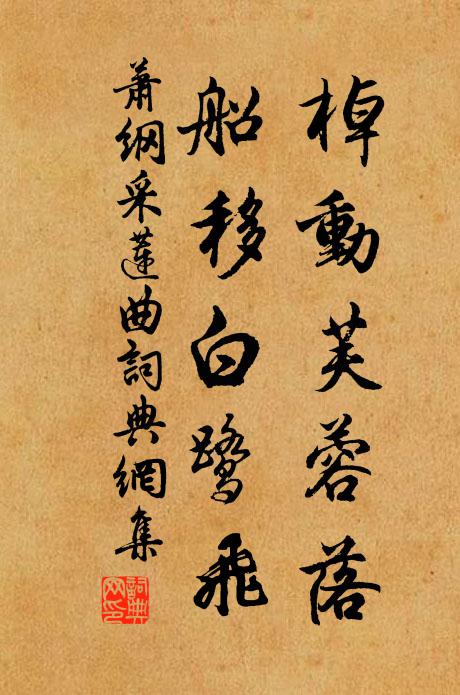 棹動芙蓉落
船移白鷺飛
蕭綱采蓮曲詞典網集
詞典网印